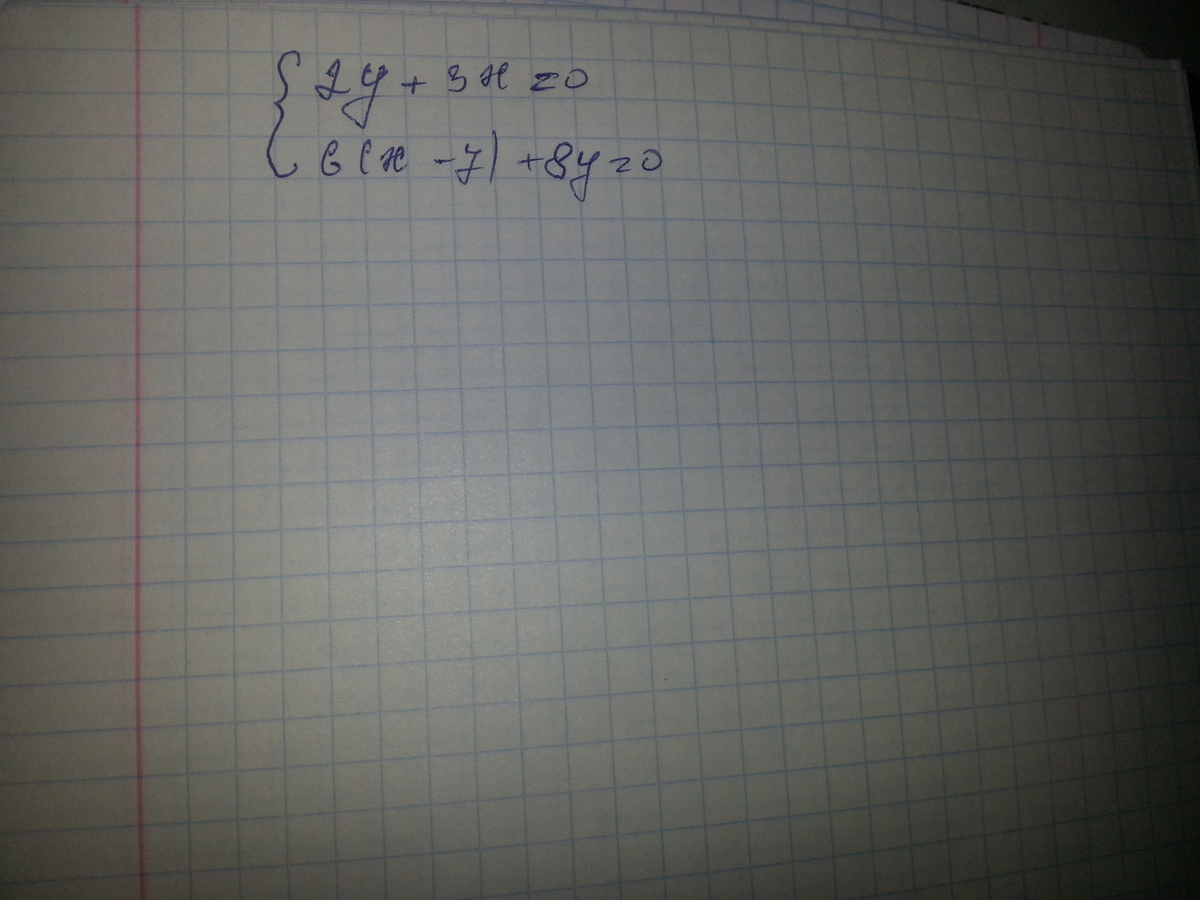 { 2y + 3x = 0
6(x - 7) + 8y = 0